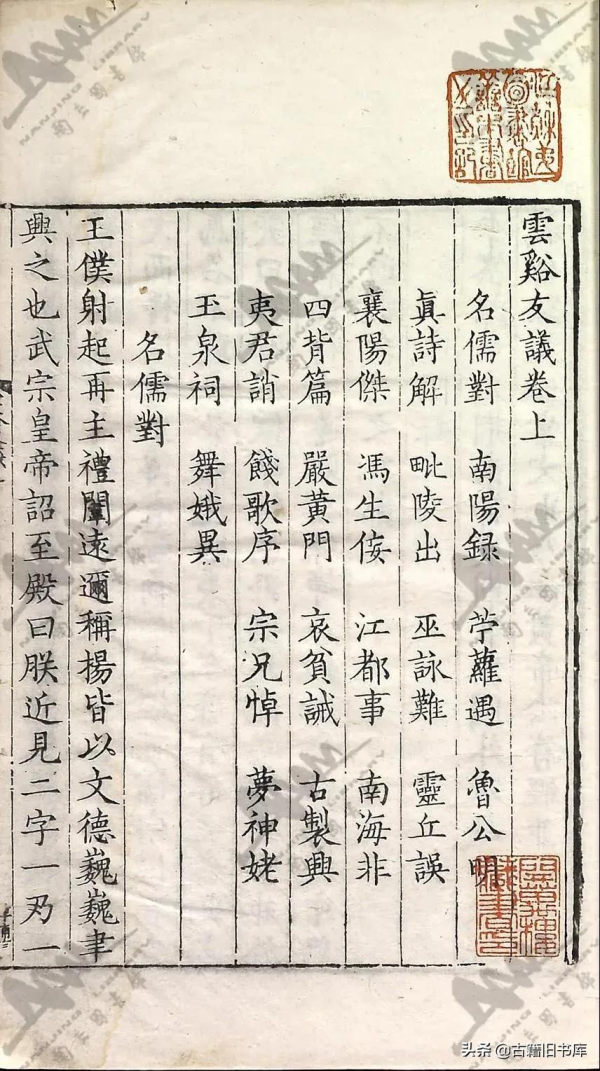 雲谿友議卷上
名儒對 南陽録 苧蘿遇 魯公明
真詩解 毗陵出 巫詠難 靈丘誤
襄陽傑 馮生佞 江都事 南海非
四背篇 嚴黄門 哀貧誡 古製興
夷君誚 餞歌序 宗兄悼 夢神姥
玉泉祠 舞娥異
名儒對
王僕射起再主禮闈遠邇稱揚皆以文德巍巍聿
興之也武宗皇帝詔至殿曰朕近見二字一刄一
头条 @古籍旧书库